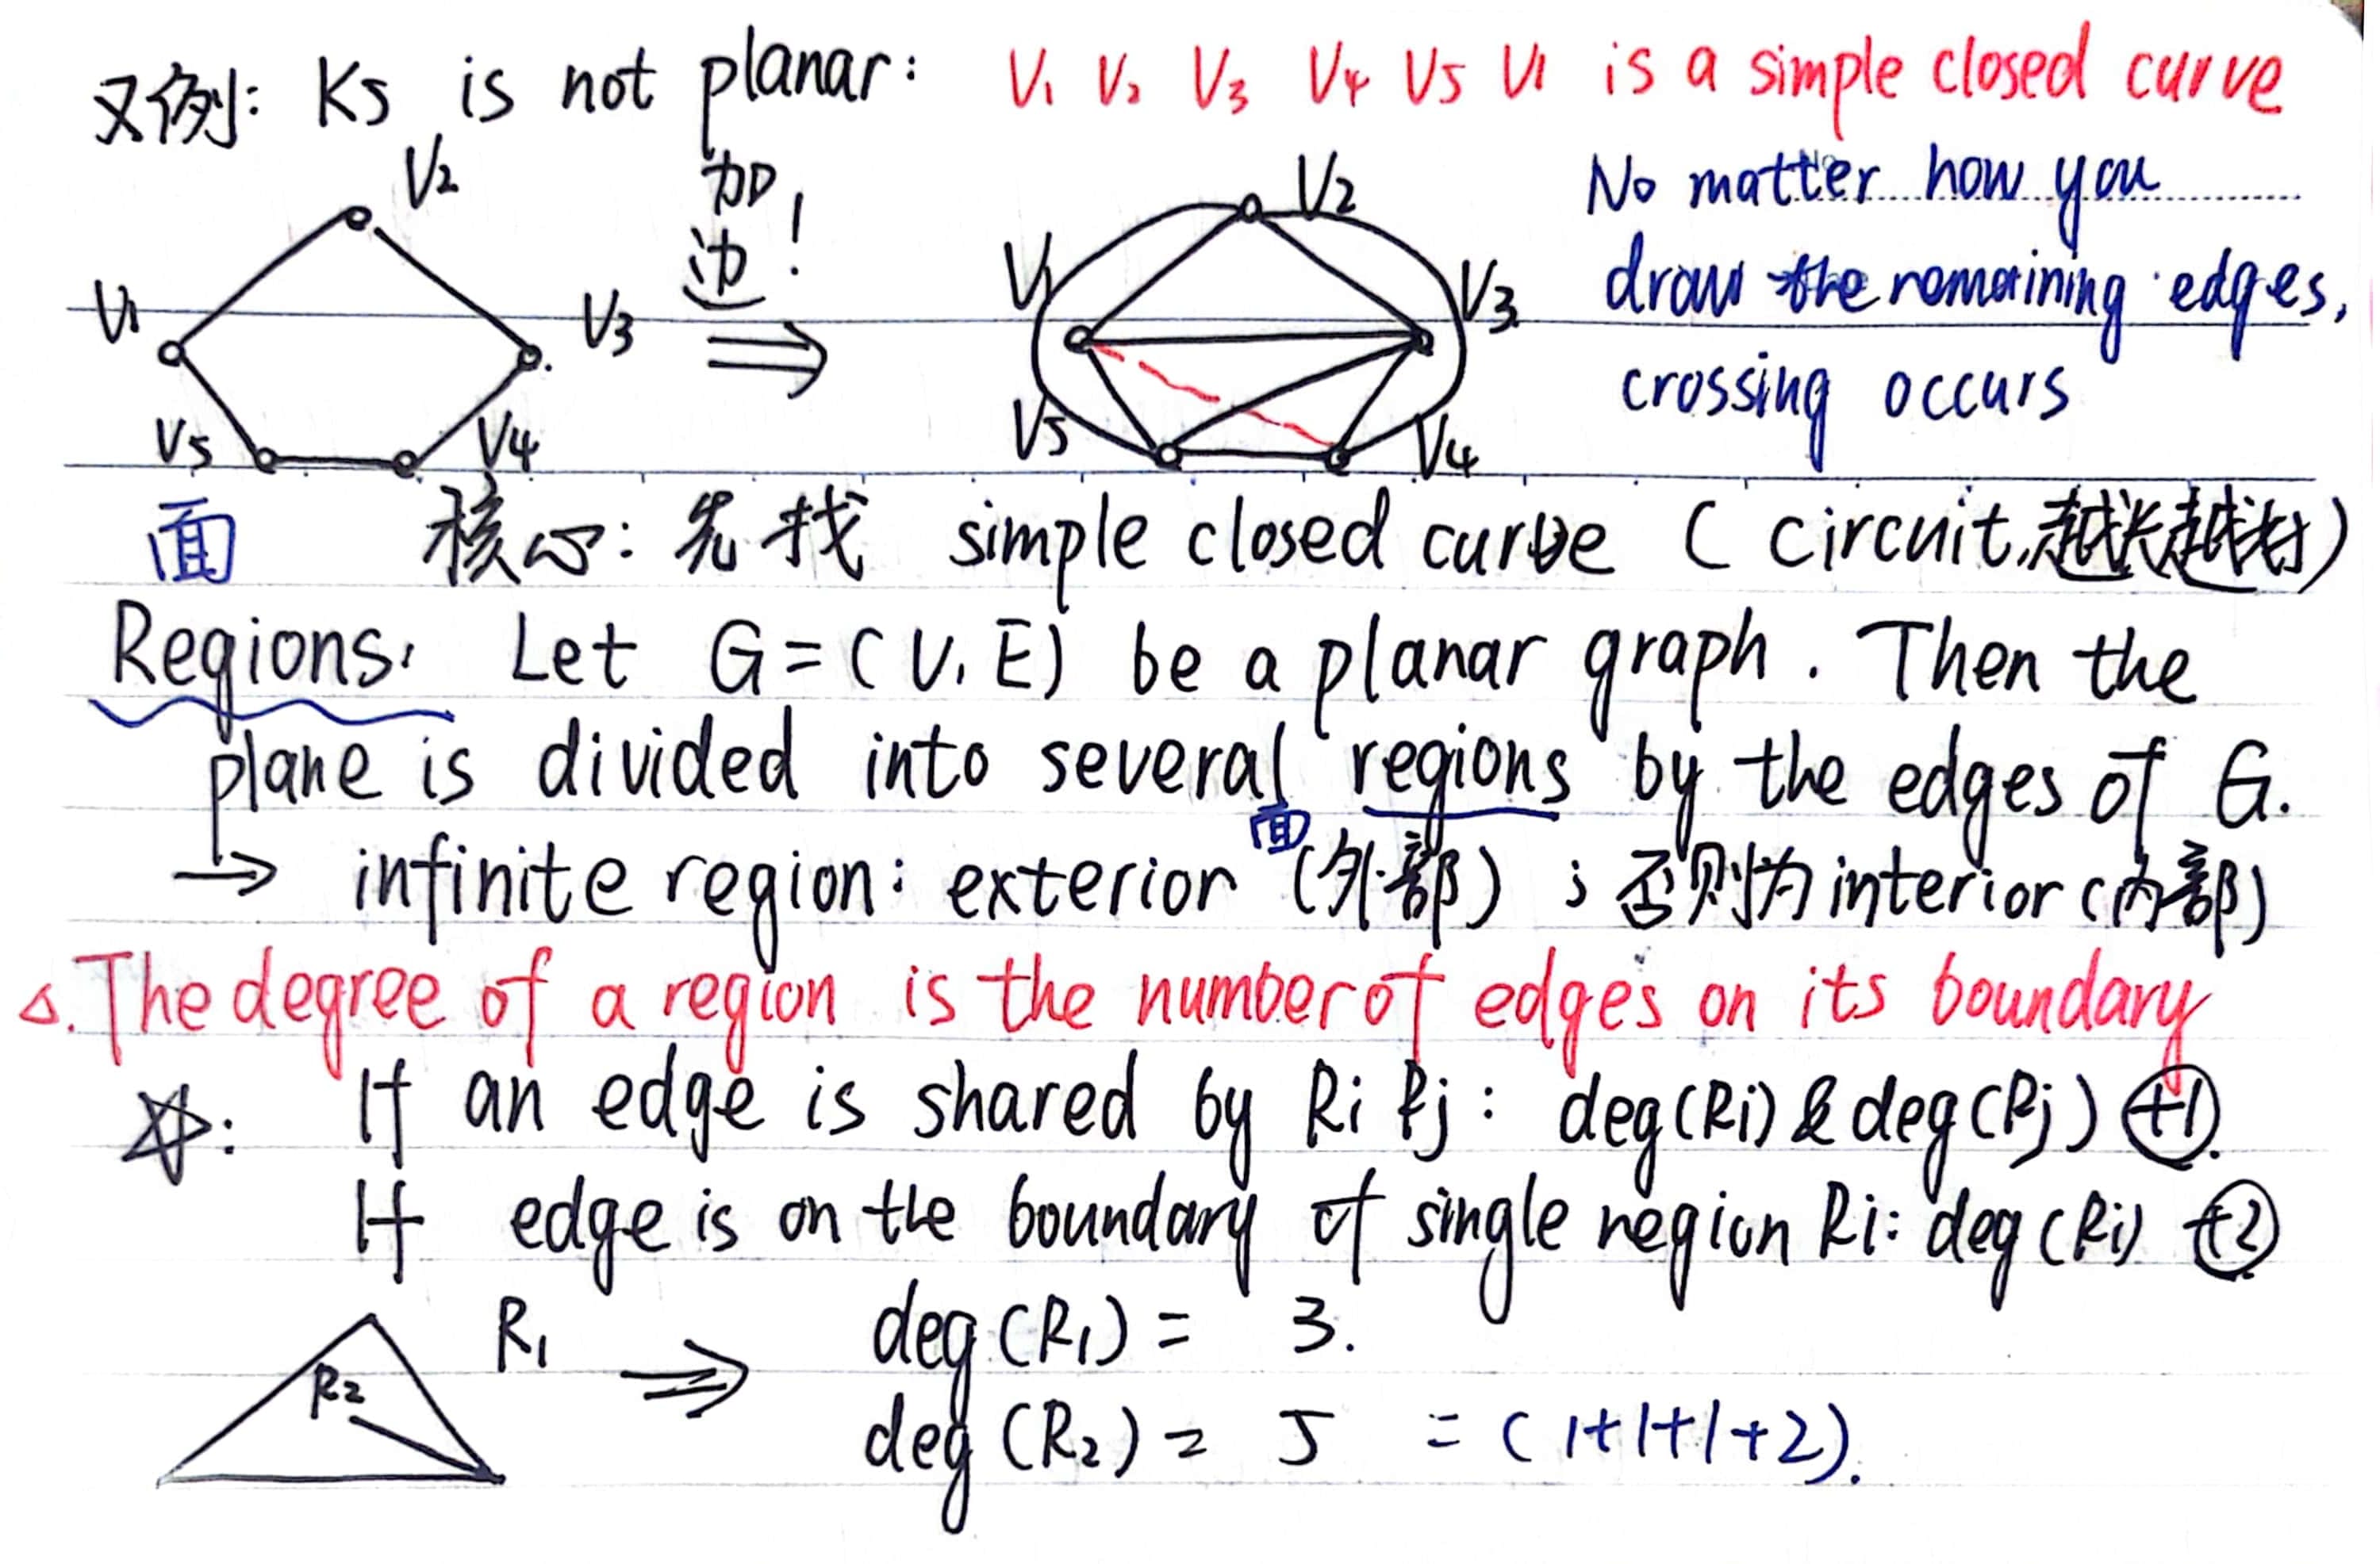 又例: K5 is not planar: V1 V2 V3 V4 V5 V1 is a simple closed curve
V2 加边! V2 No matter how you
V1 V3 V1 V3 draw the remaining edges,
V5 V4 V5 V4 crossing occurs
面 核心: 先找 simple closed curve ( circuit,越长越好)
Regions: Let G=(V,E) be a planar graph. Then the
plane is divided into several regions by the edges of G.
面
→ infinite region: exterior (外部) ; 否则为interior(内部)
△. The degree of a region is the number of edges on its boundary
☆: If an edge is shared by Ri Rj: deg(Ri) & deg(Rj) +1.
If edge is on the boundary of single region Ri: deg(Ri) +2
R1 ⇒ deg(R1) = 3.
R2 deg(R2) = 5 = (1+1+1+2).